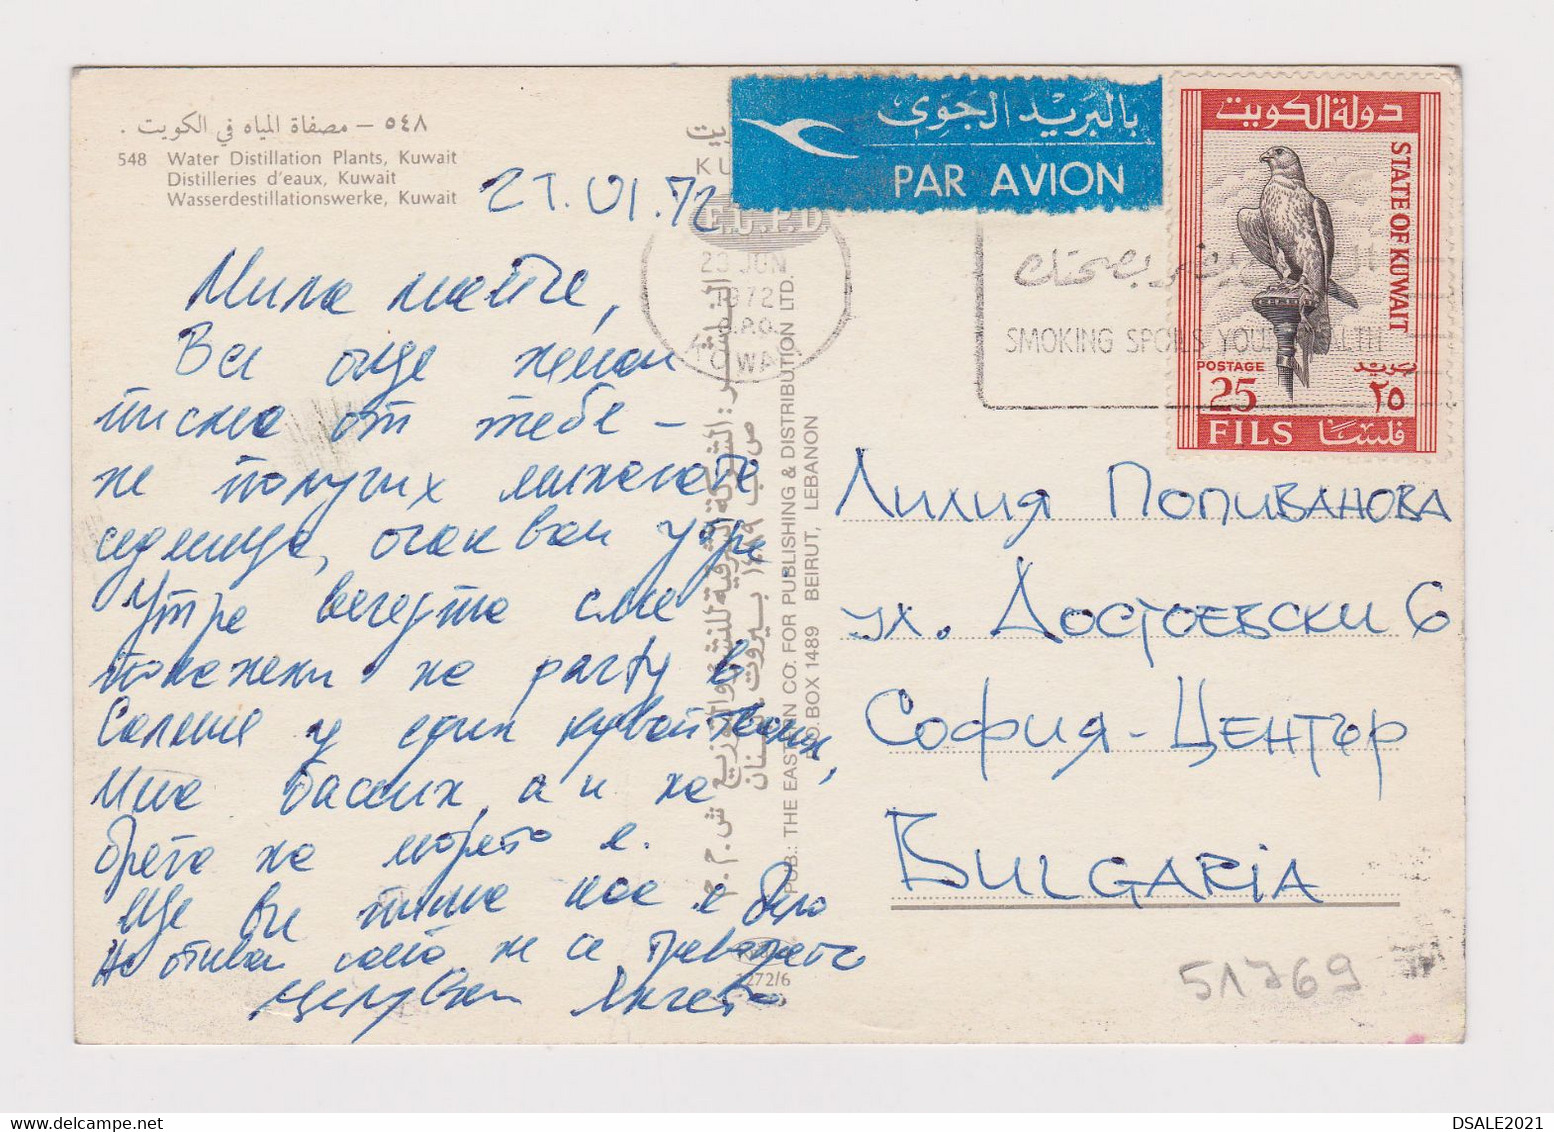 ٥٤٨ – مصفاة المياه في الكويت .
548 Water Distillation Plants, Kuwait
Distilleries d'eaux, Kuwait
Wasserdestillationswerke, Kuwait
21.VI.72
Мила майче,
Все още нямам
писмо от тебе –
не получих миналата
седмица, очаквам утре.
Утре вечерта сме
поканени на party в
у един кувейтчанин,
има басейн, а и на
брега на морето е.
Ще ви пиша пак е
На отиван само не се
Целувам
KU
E.C.P.D
23 JUN
1972
G.P.O.
KUWAIT
الناشر: الشركة الشرقية للنشر والتوزيع ش.م.م
ص.ب ١٤٨٩ بيروت، لبنان
PUB.: THE EASTERN CO. FOR PUBLISHING & DISTRIBUTION LTD.
P.O.BOX 1489 BEIRUT, LEBANON
1272/6
بالبريد الجوي
PAR AVION
بصحتك
SMOKING SPOILS YOUR HEALTH
دولة الكويت
STATE OF KUWAIT
POSTAGE بريد
25 ٢٥
FILS فلسا
Лилия Попиванова
ул. Достоевски 6
София-Център
BULGARIA
51769
DSALE2021